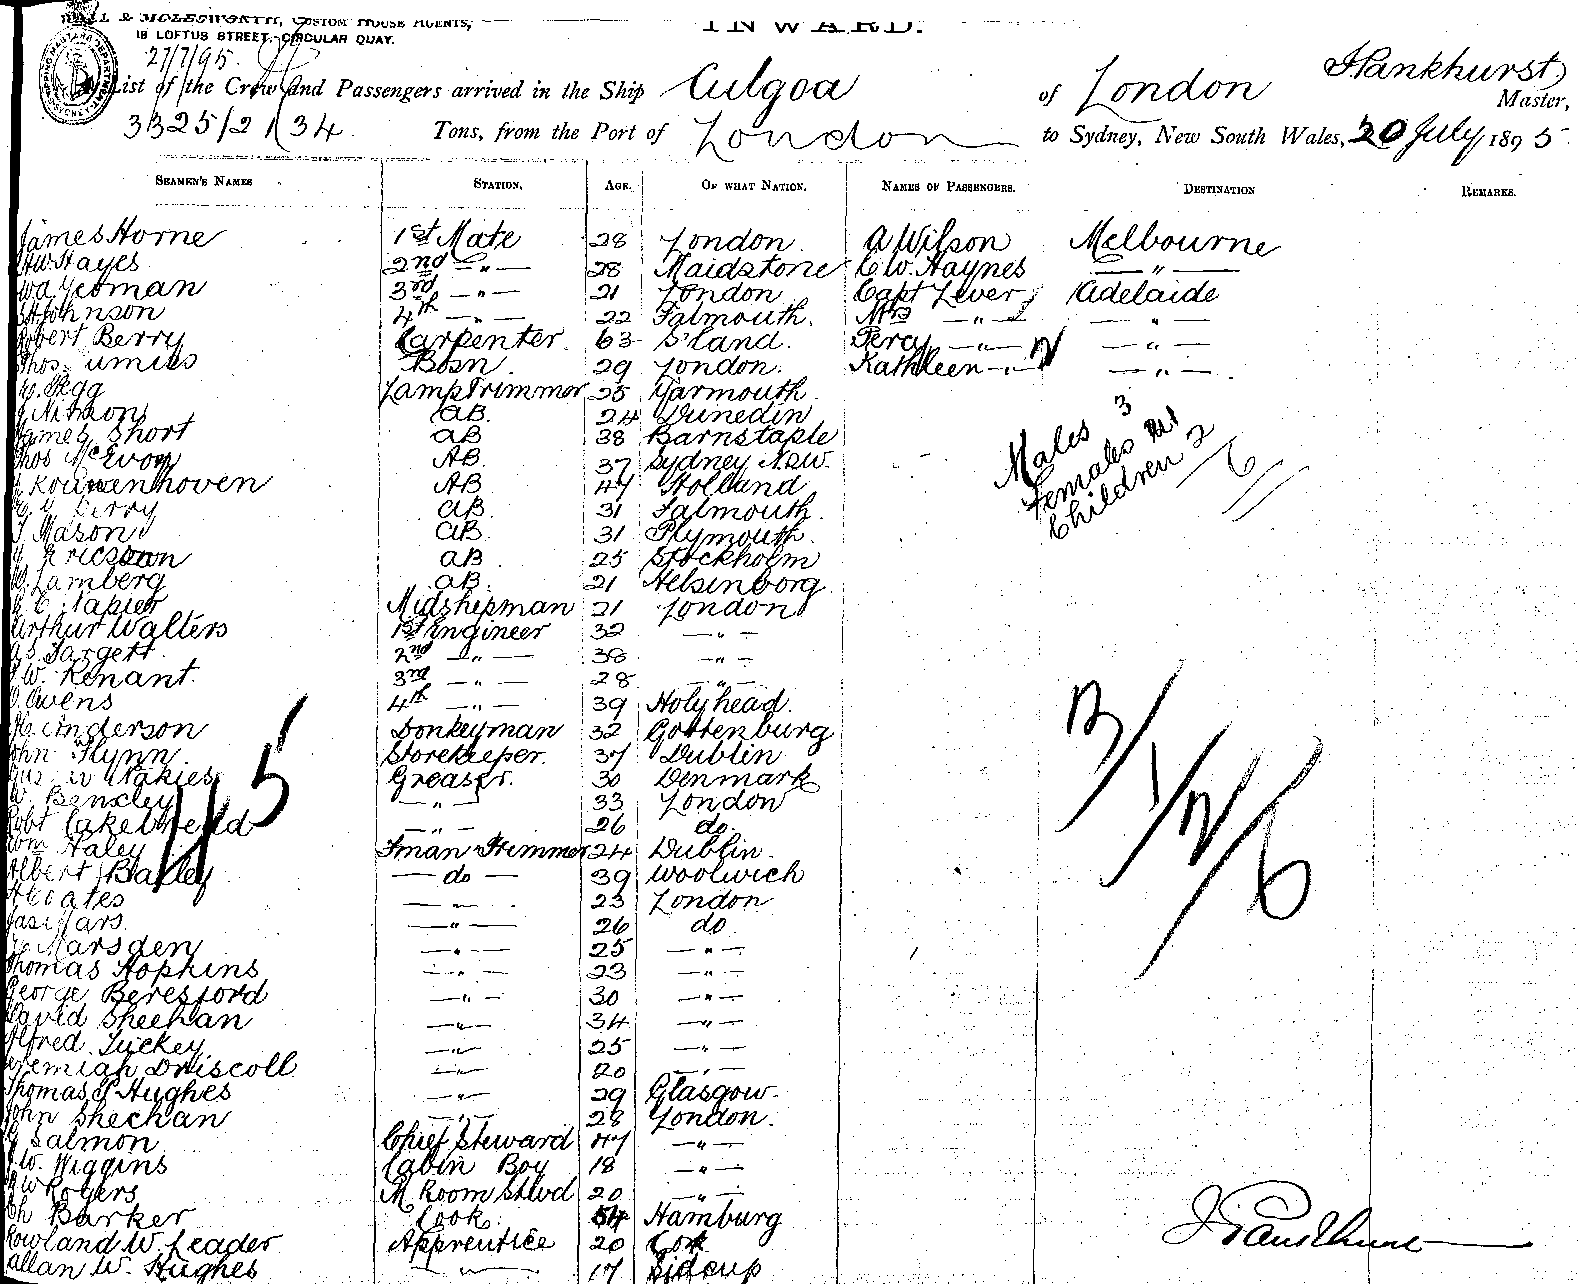 & MOLESWORTH, CUSTOM HOUSE AGENTS,
18 LOFTUS STREET, CIRCULAR QUAY.
INWARD.
27/7/95.
List of the Crew and Passengers arrived in the Ship Culgoa of London J Pankhurst Master,
3325/21/34 Tons, from the Port of London to Sydney, New South Wales, 20 July 1895
SEAMEN'S NAMES STATION. AGE. OF WHAT NATION. NAMES OF PASSENGERS. DESTINATION REMARKS.
James Horne 1st Mate 28 London A Wilson Melbourne
HW Hayes 2nd —"— 28 Maidstone C.W. Haynes —"—
Yeoman 3rd —"— 21 London Capt Lever Adelaide
Johnson 4th —"— 22 Falmouth. Mrs —"— —"—
Robert Berry Carpenter 63 S'land. Percy —"— —"—
Thos. Bosn. 29 London. Kathleen —"— —"—
Lamp Trimmer 25 Yarmouth
AB. 24 Dunedin
James Short AB 38 Barnstaple
Thos McEvoy AB. 37 Sydney NSW.
Kouwenhoven AB 47 Holland
Berry AB. 31 Falmouth.
Mason AB. 31 Plymouth.
Ericsson AB 25 Stockholm
Lamberg AB. 21 Helsinborg
Napier Midshipman 21 London
Arthur Walters 1st Engineer 32 —"—
Targett 2nd —"— 38 —"—
W. Tenant. 3rd —"— 28 —"—
Owens 4th —"— 39 Holyhead.
Anderson Donkeyman 32 Gottenburg
John Flynn. Storekeeper. 37 Dublin
Greaser. 30 Denmark
Benxley —"— 33 London
Robt Cakebread —"— 26 do.
Wm Haley Fman Trimmer 24 Dublin.
Albert Bayley — do — 39 Woolwich
Coates —"— 23 London
Jas Mars —"— 26 do
Marsden —"— 25 —"—
Thomas Hopkins —"— 23 —"—
George Beresford —"— 30 —"—
David Sheehan —"— 34 —"—
Alfred Tuckey —"— 25 —"—
Jeremiah Driscoll —"— 20 —"—
Thomas P Hughes —"— 29 Glasgow.
John Sheehan —"— 28 London.
Salmon Chief Steward 47 —"—
W. Wiggins Cabin Boy 18 —"—
W Rogers M. Room Stwd 20 —"—
Ch Barker Cook 54 Hamburg
Rowland W. Leader Apprentice 20 Cork
Allan W. Hughes —"— 17 Sidcup
Males 3
Females 1
Children 2
6
45
3/1/2/6
J Pankhurst